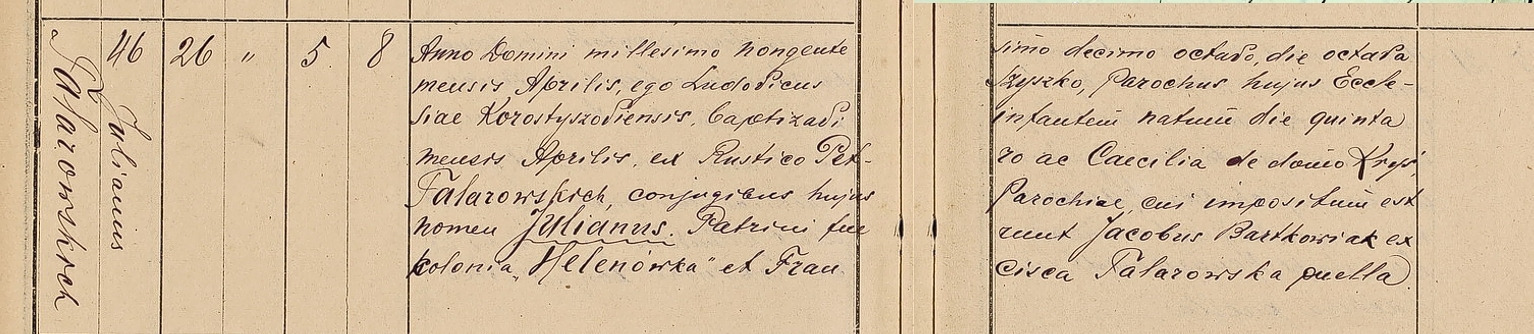 46 26 " 5. 8
Talarowskich
Julianus
Anno Domini millesimo nongente
simo decimo octavo, die octava
mensis Aprilis, ego Ludovicus
Szyszko, Parochus hujus Eccle-
siae Korostyszoviensis, baptizavi
infantem natum die quinta
mensis Aprilis, ex Rustico Pet-
ro ac Caecilia de domo
Talarowskich, conjugibus hujus
Parochiae, cui impositum est
nomen Julianus. Patrini fue
runt Jacobus Bartkowiak ex
colonia „Helenówka" et Fran
cisca Talarowska puella